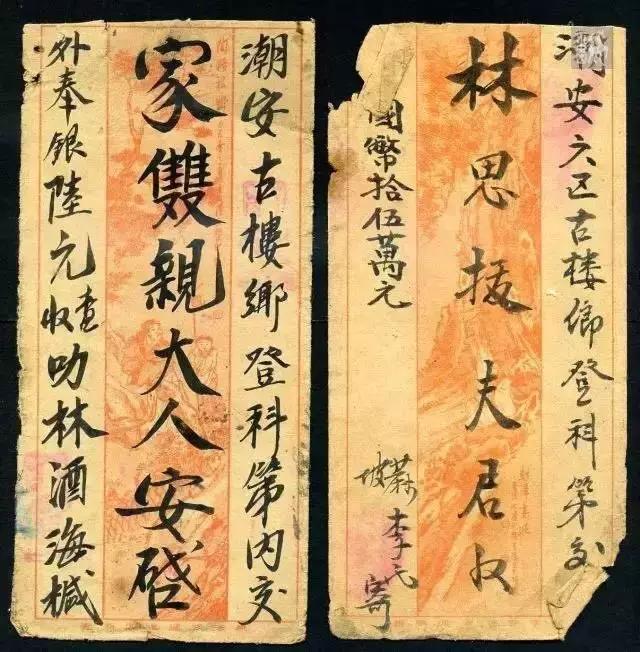 潮安古樓鄉登科第內交
家雙親大人安啓
外奉銀陸元查收叻林酒海椷
潮安六区古楼鄉登科第交
林思夫君收
國幣拾伍萬元
蔴坡李氏寄